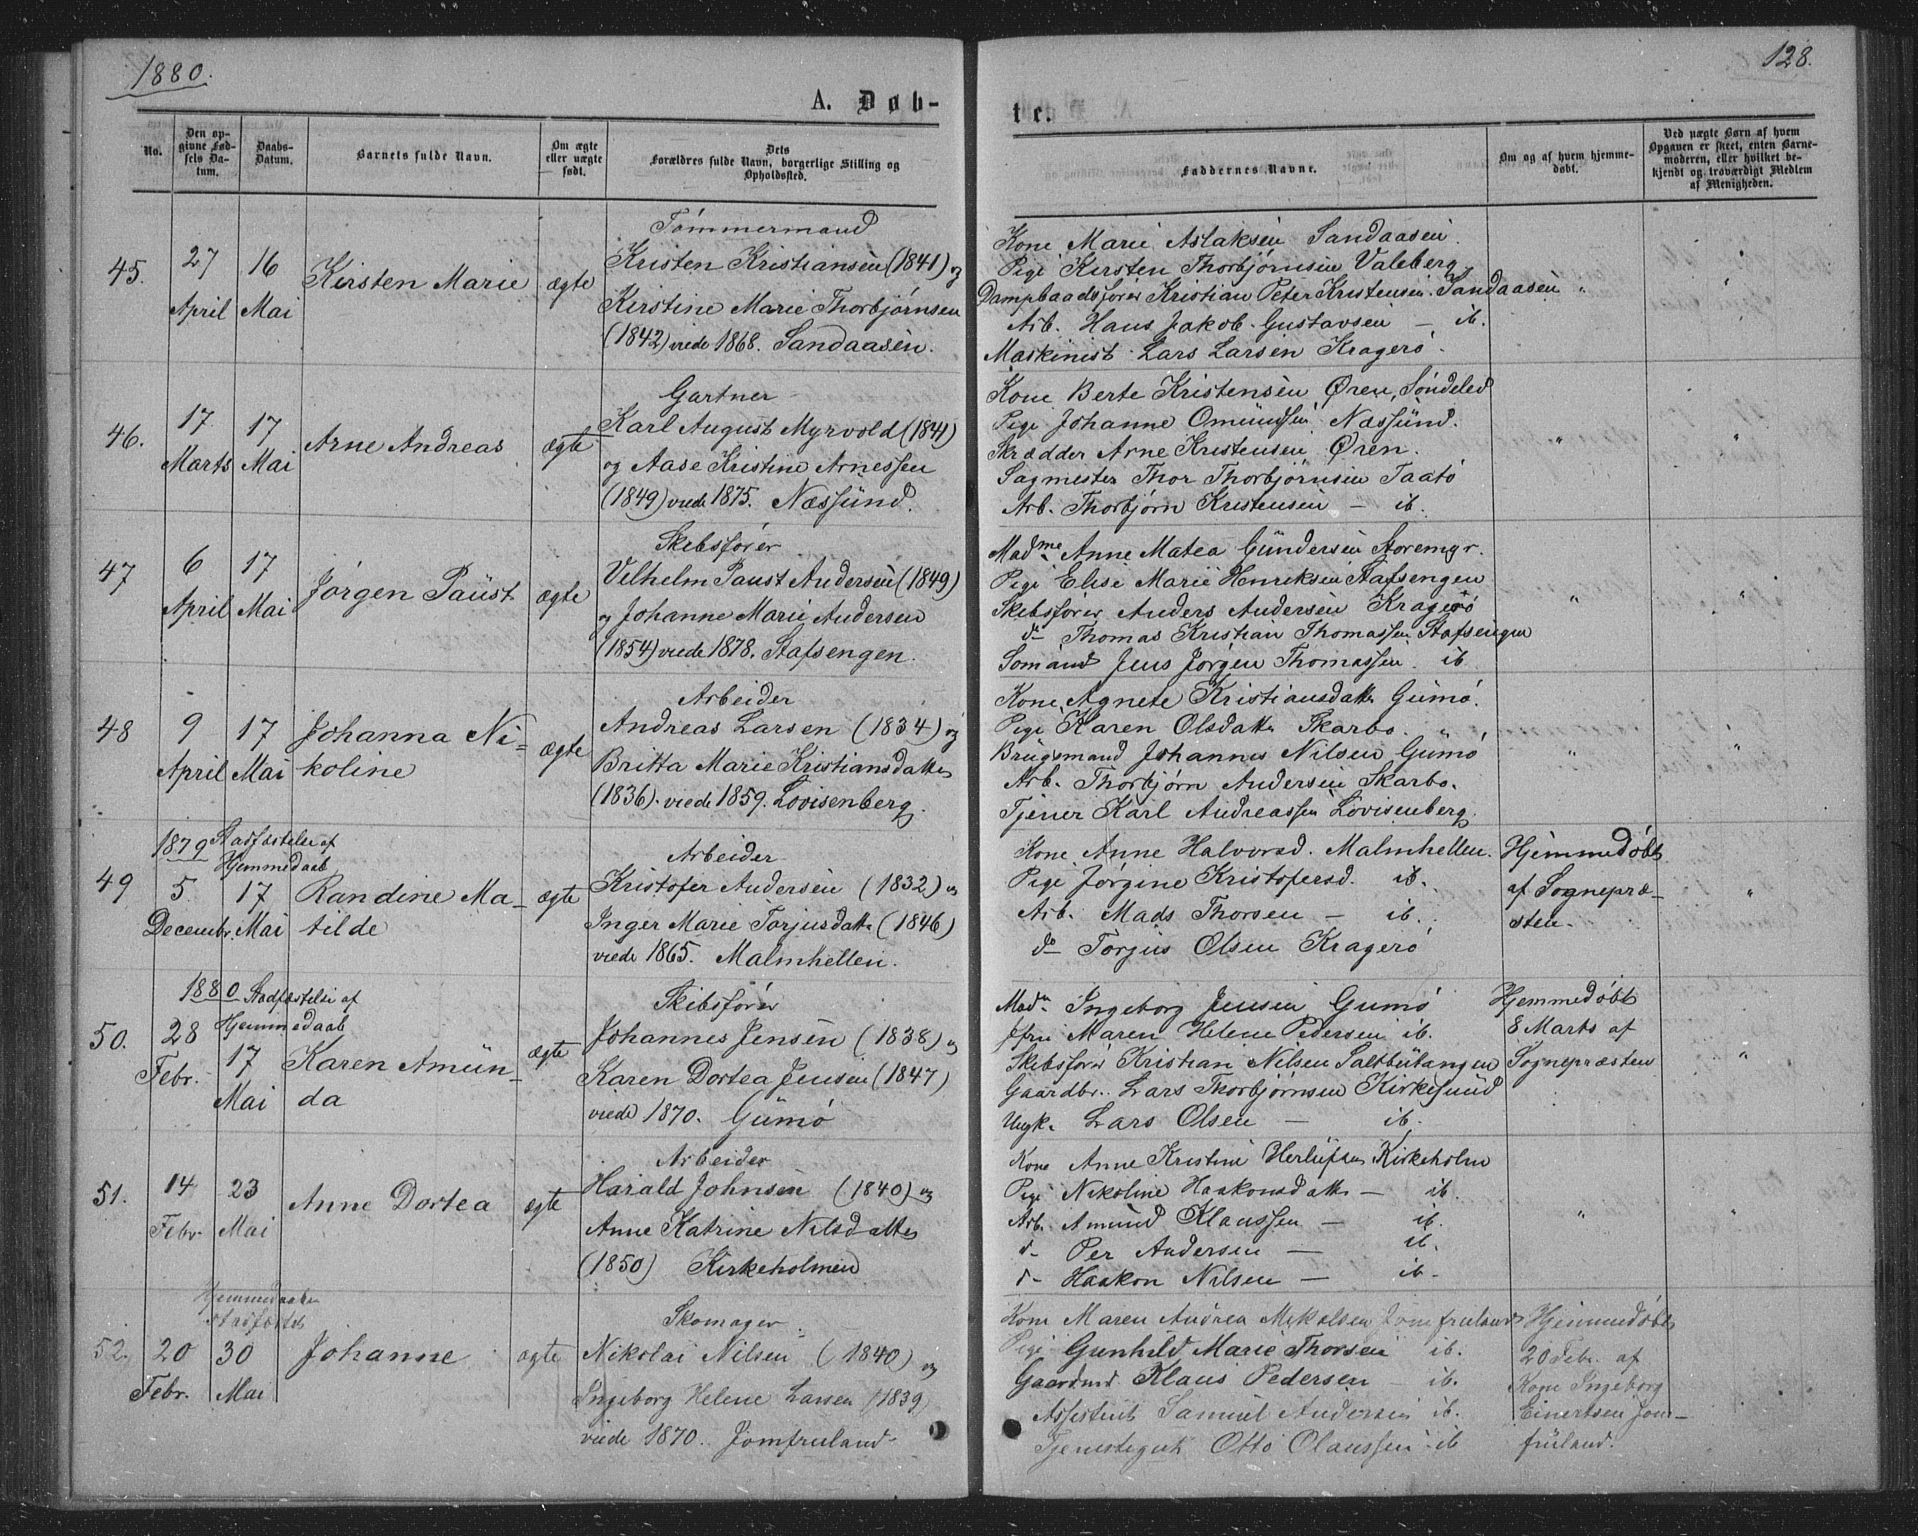 1880.
128.
A. Døb-
te.
No.
Den op-
givne Fød-
sels Da-
tum.
Daabs-
Datum.
Barnets fulde Navn.
Om ægte
eller uægte
født.
Dets
Forældres fulde Navn, borgerlige Stilling og
Opholdssted.
Faddernes Navne.
Om og af hvem hjemme-
døbt.
Ved uægte Børn af hvem
Opgaven er skeet, enten Barne-
moderen, eller hvilket be-
kjendt og troværdigt Medlem
af Menigheden.
45.
27
April
16
Mai
Kirsten Marie
ægte
Tømmermand
Kristen Kristiansen (1841) og
Kirstine Marie Thorbjørnsen
(1842) viede 1868. Sandaasen.
Kone Marie Aslaksen Sandaasen.
Pige Kirsten Thorbjørnsen Valeberg
Dampbaadsfører Kristian Peter Kristensen Sandaasen "
"
Arb. Hans Jakob Gustavsen — ib.
Maskinist Lars Larsen Kragerø.
46.
17
Marts
17
Mai
Arne Andreas
ægte
Gartner
Karl August Myrvold (1841)
og Aase Kristine Arnessen
(1849) viede 1875. Næssund.
Kone Berte Kristensen Øren, Søndeled
Pige Johanne Omundsen Næssund.
Skrædder Arne Kristensen Øren.
Sagmester Thor Thorbjørnsen Taatø
Arb. Thorbjørn Kristensen — ib.
"
"
47
6
April
17
Mai
Jørgen Paust
ægte
Skibsfører
Vilhelm Paust Andersen (1849)
og Johanne Marie Andersen
(1854) viede 1878. Stafsengen.
Madme Anne Matea Gundersen Storemyr.
Pige Elise Marie Henriksen Stafsengen
Skibsfører Anders Andersen Kragerø
do Thomas Kristian Thomassen Stafsengen
Sømand Jens Jørgen Thomassen. ib.
"
"
48
9
April
17
Mai
Johanna Ni-
koline
ægte
Arbeider
Andreas Larsen (1834) og
Britta Marie Kristiansdatte
(1836). viede 1859. Lovisenberg.
Kone Agnete Kristiansdatt Gumø.
Pige Karen Olsdatt Skarbo. "
Brugsmand Johannes Nilsen Gumø
Arb. Thorbjørn Andersen Skarbo.
Tjener Karl Andreassen Lovisenberg
"
"
49
1879
5
Decembr.
Stadfæstelse af
Hjemmedaab
17
Mai
Randine Ma-
tilde
ægte
Arbeider
Kristofer Andersen (1832) og
Inger Marie Torjusdatt (1846)
viede 1865. Malmhellen.
Kone Anne Halvorsd. Malmhellen.
Pige Jørgine Kristofersd. ib.
Arb. Mads Thorsen — ib.
do Torjus Olsen Kragerø
Hjemmedøbt
af Sognepræ-
sten.
"
50.
1880
28
Febr.
Stadfæstelse af
Hjemmedaab
17
Mai
Karen Amun-
da
ægte
Skibsfører
Johannes Jensen (1838) og
Karen Dortea Jensen (1847)
viede 1870. Gumø
Madm Ingeborg Jensen Gumø
Jfru Maren Helene Pedersen ib.
Skibsfører Kristian Nilsen Saltbutangen
Gaardbr. Lars Thorbjørnsen Kirkesund
Ungk. Lars Olsen — ib.
Hjemmedøbt
8 Marts af
Sognepræsten
"
51.
14
Febr.
23
Mai
Anne Dortea
ægte
Arbeider
Harald Johnsen (1840) og
Anne Katrine Nilsdatte
(1850) Kirkeholmen
Kone Anne Kristine Herlufsen Kirkeholm
Pige Nikoline Haakonsdatt — ib.
Arb. Amund Klaussen — ib.
d- Per Andersen — ib.
d- Haakon Nilsen — ib.
"
"
52.
20
Febr.
Hjemmedaab
stadfæstet
30
Mai
Johanne
ægte
Skomager
Nikolai Nilsen (1840) og
Ingeborg Helene Larsen (1839)
viede 1870. Jomfruland
Kone Maren Andrea Mikalsen Jomfruland
Pige Gunhild Marie Thorsen ib.
Gaardmd Klaus Pedersen — ib.
Assistent Samuel Andersen ib.
Tjenestegut Otto Olaussen ib
Hjemmedøbt
20 Febr. af
Kone Ingeborg
Einertsen Jom-
fruland.